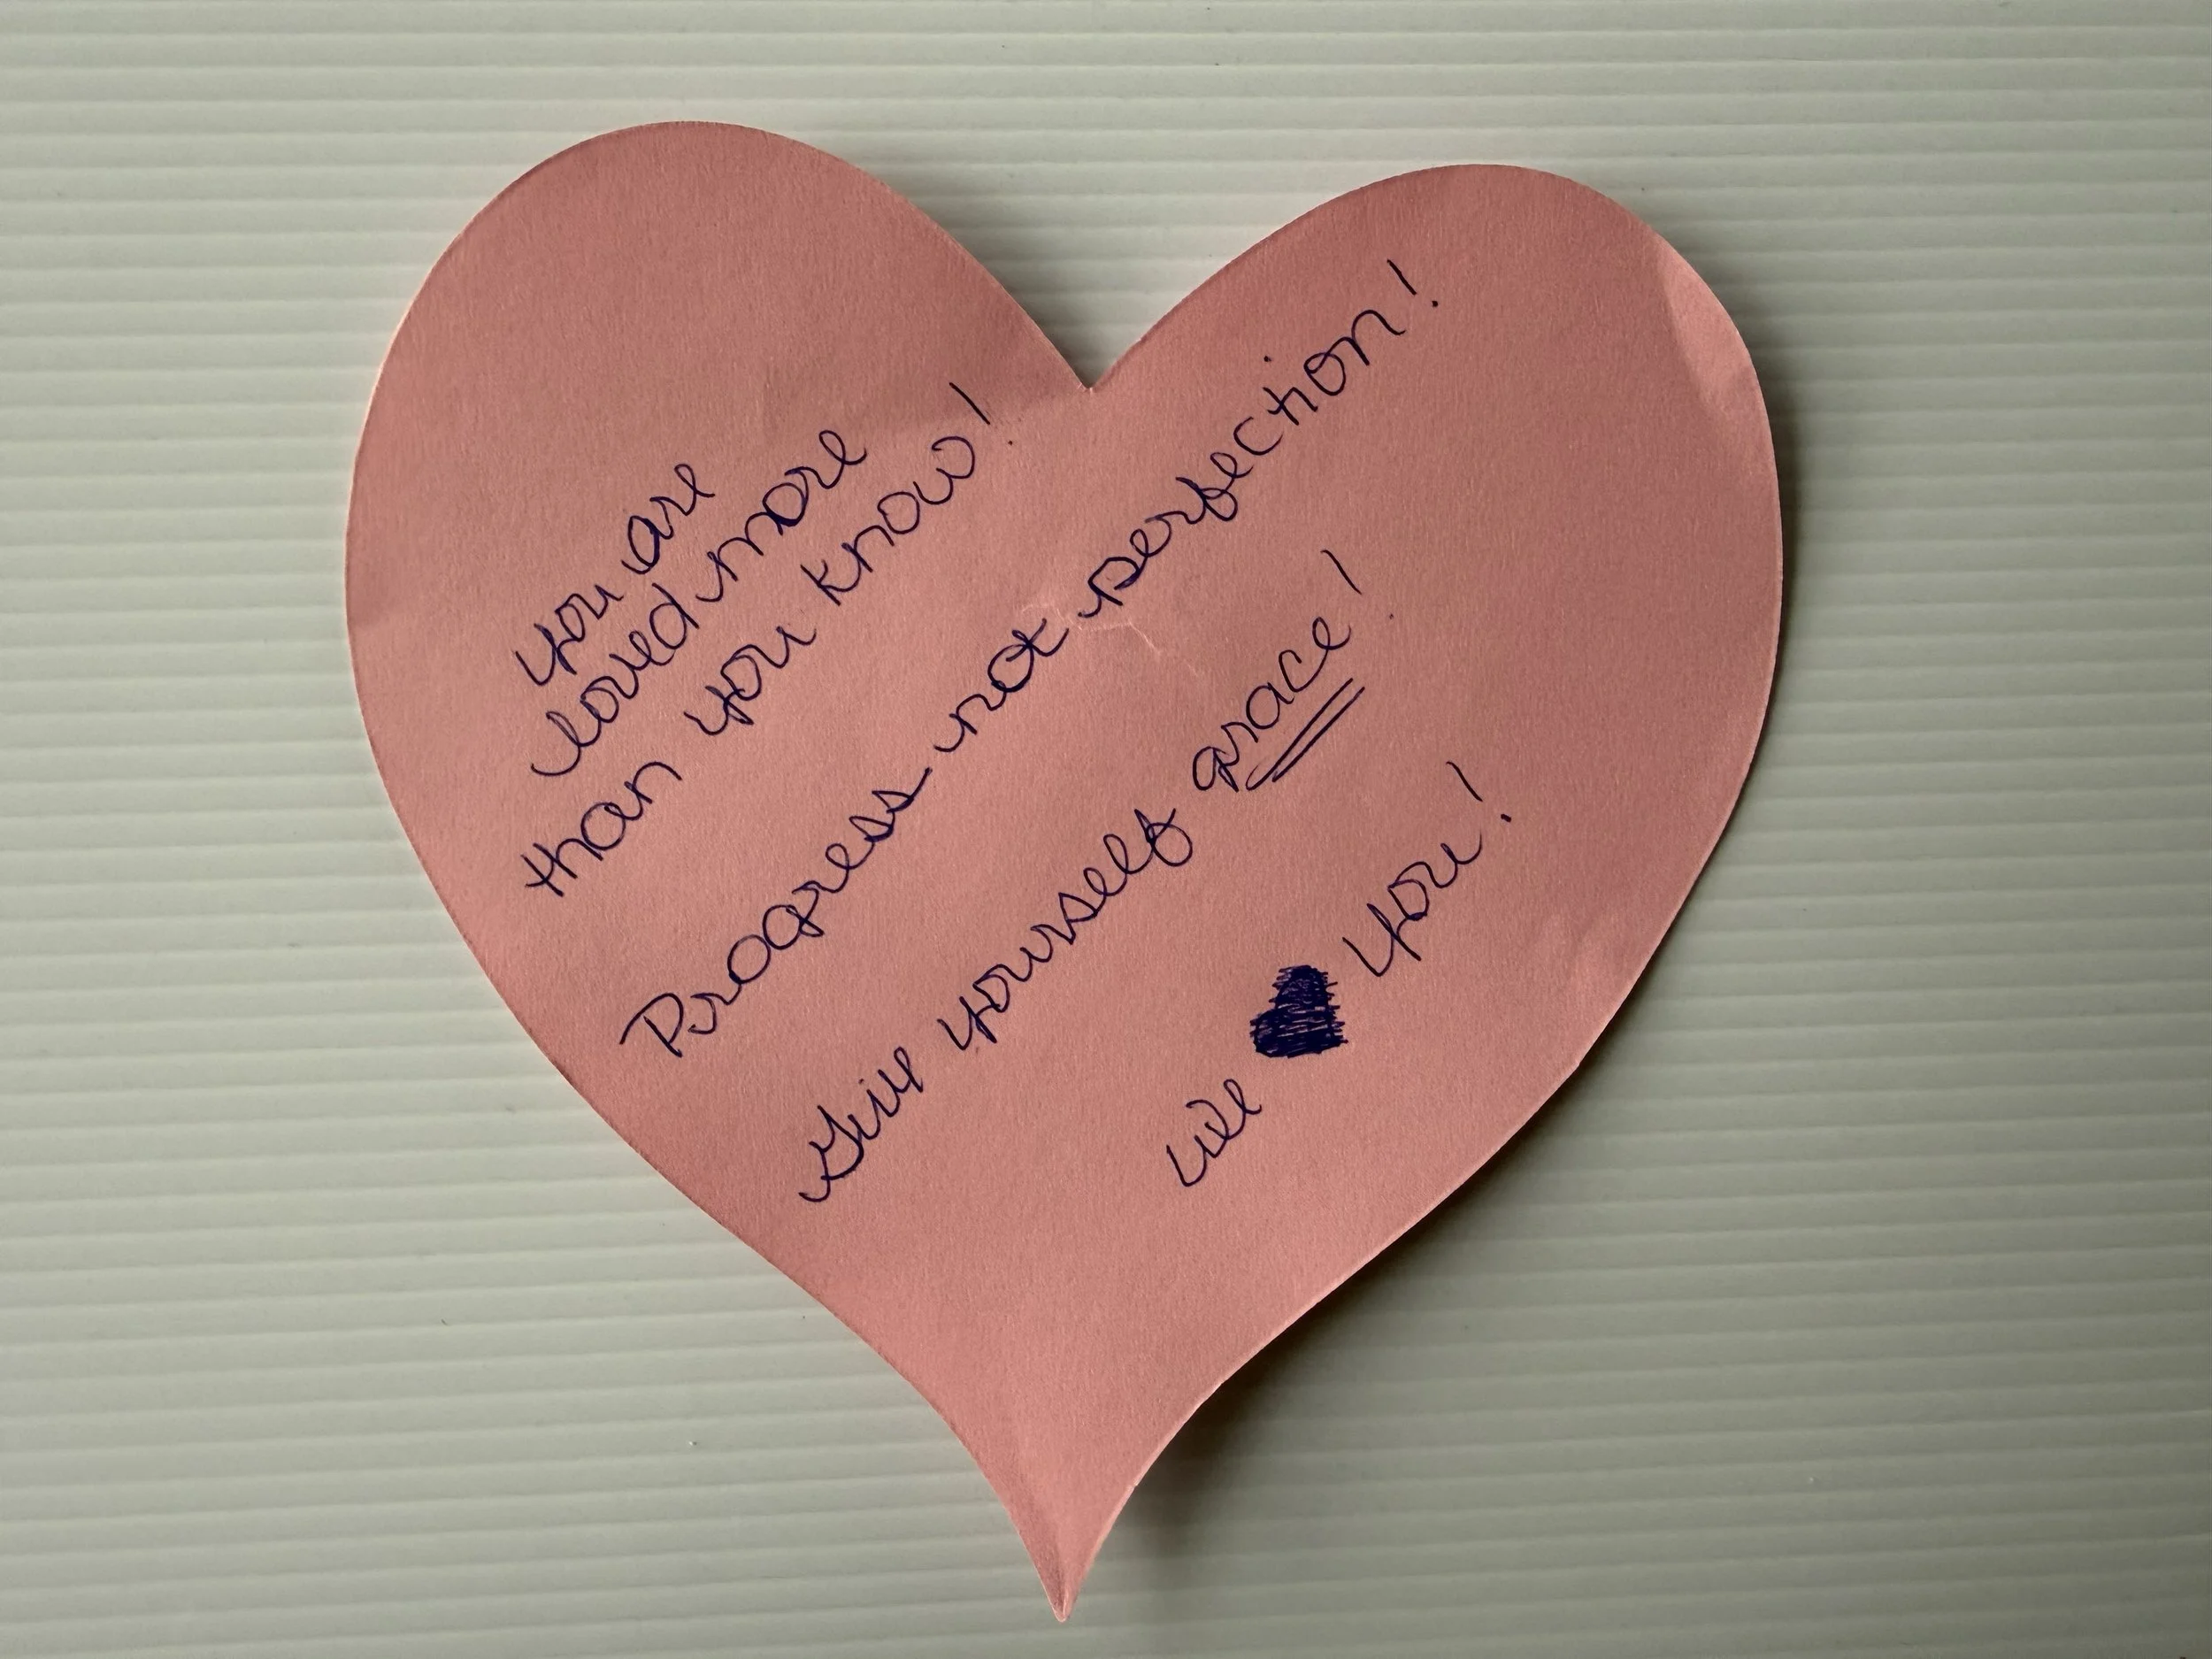 you are
loved more
than you know!
Progress not perfection!
Give yourself grace!
We ♥ you!